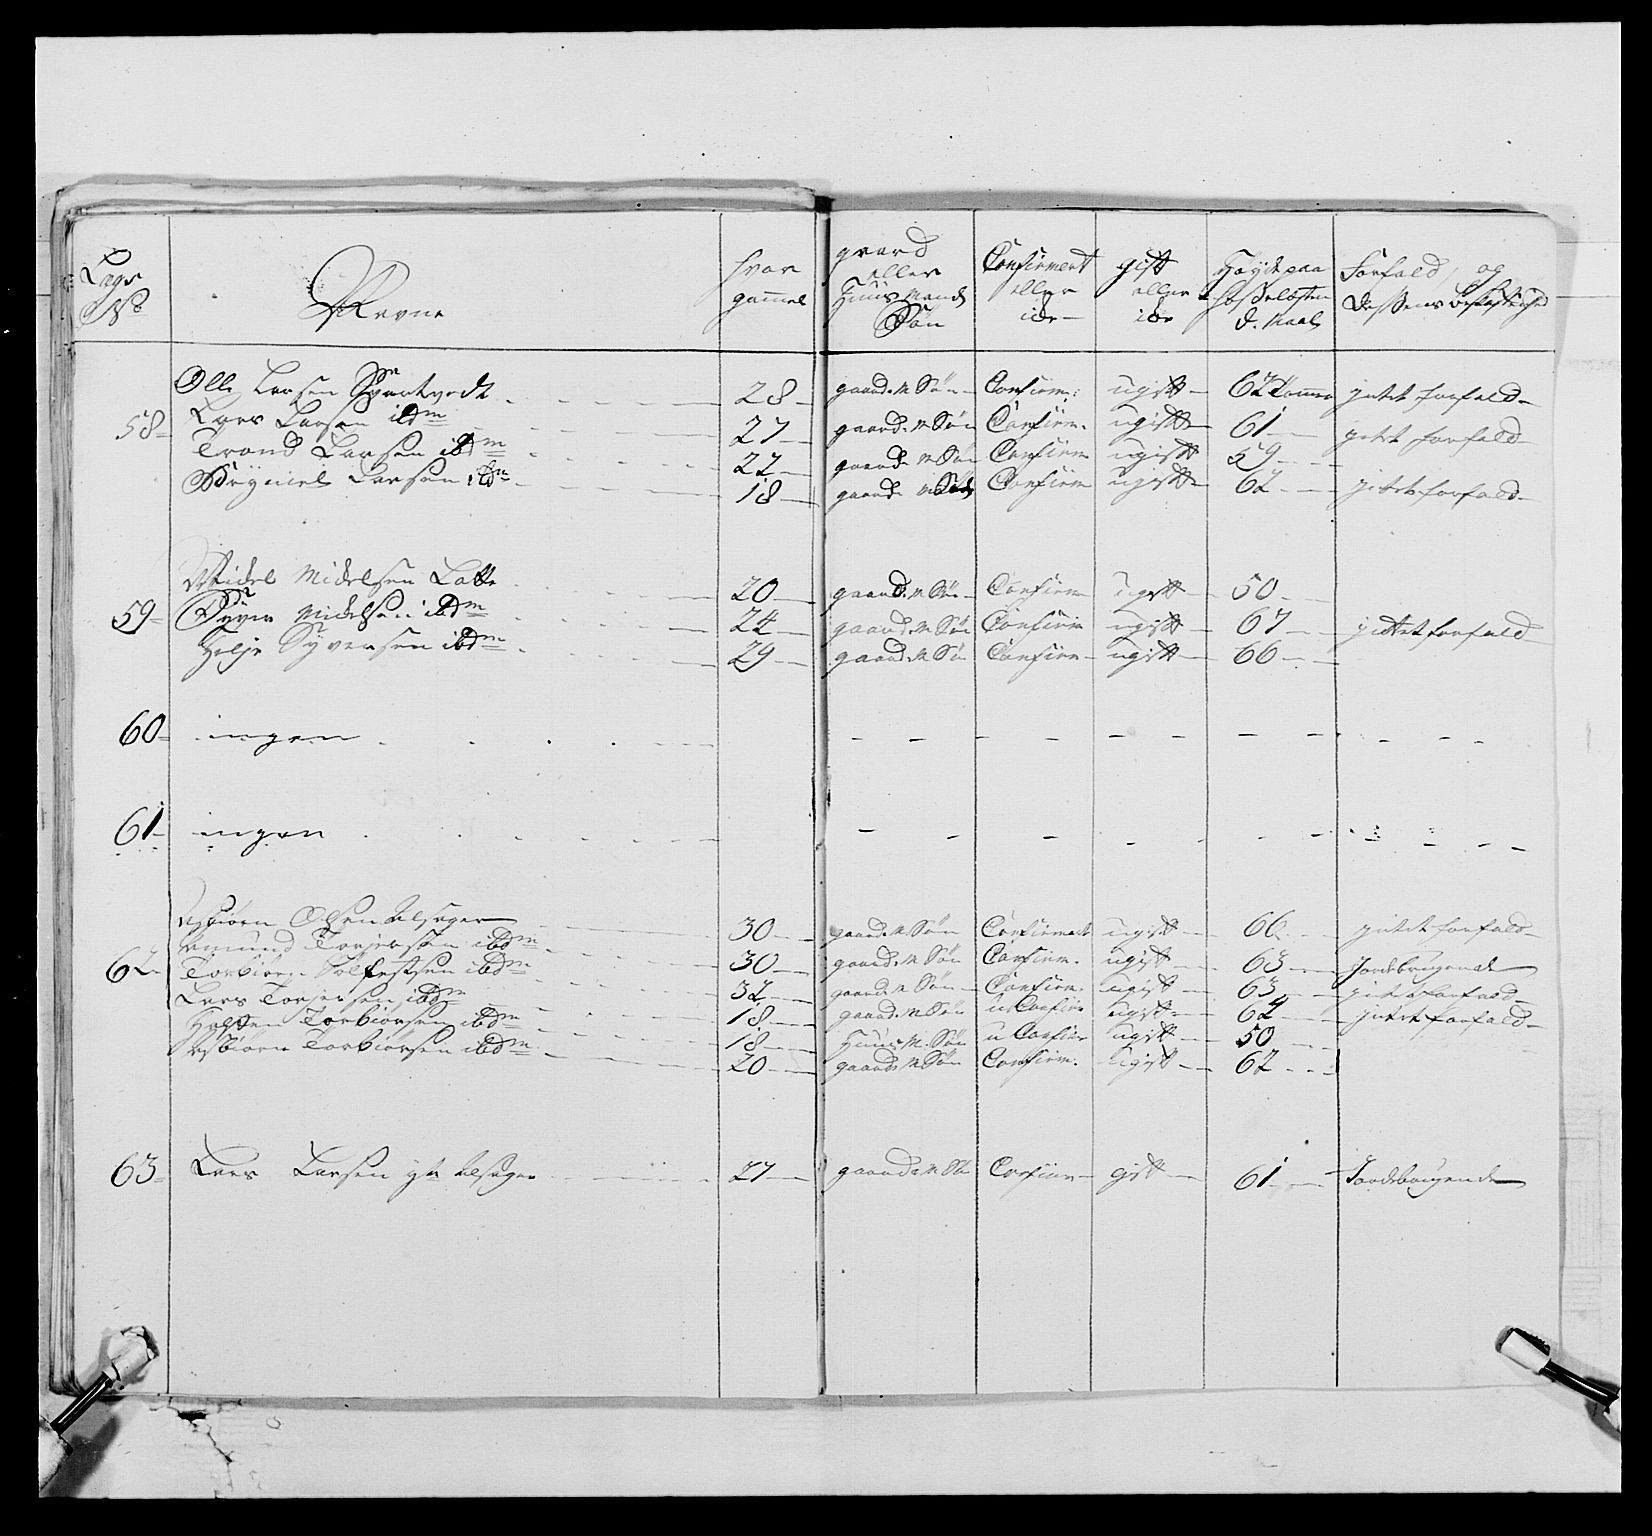 Lægs No
Nevne
hvor gammel
gaard eller Huus Mands Søn
Confirmert eller icke
gift eller icke
Høyde paa d. Maal
Forfald og Dessens
Olle Larsen Svartvedt 28 gaard. M Søn Confirm: ugift 62 intet forfald
58 Lars Larsen ibdm 27 gaard. M Søn Confirm. ugift 61 intet forfald
Trond Larsen ibdm 22 gaard. M Søn Confirm ugift 59
Larsen ibdm 18 gaard. M Søn Confirm ugift 62 intet forfald
Midelsen 20 gaard. M Søn Confirm ugift 50
59 Syver Midelsen ibdm 24 gaard. M Søn Confirm ugift 67 intet forfald
Helje Syversen ibdm 29 gaard. M Søn Confirm ugift 66
60 ingen
61 ingen
Asbiørn Olsen 30 gaard. M Søn Confirmert ugift 66 intet forfald
Amund Torjersen ibdm 30 gaard. M Søn Confirm. ugift 63 Jordbrugende
62 Torbiørn ibdm 32 gaard. M Søn Confirm. ugift 63 intet forfald
Lars Torjersen ibdm 18 gaard. M Søn u Confirm ugift 64 intet forfald
Torbiørsen ibdm 18 Huus M. Søn u Confirm ugift 50
Asbiørn Torbiørsen ibdm 20 gaard. M Søn Confirm. ugift 62
63 Lars Larsen 27 gaard. M Søn Confirm gift 61 Jordbrugende